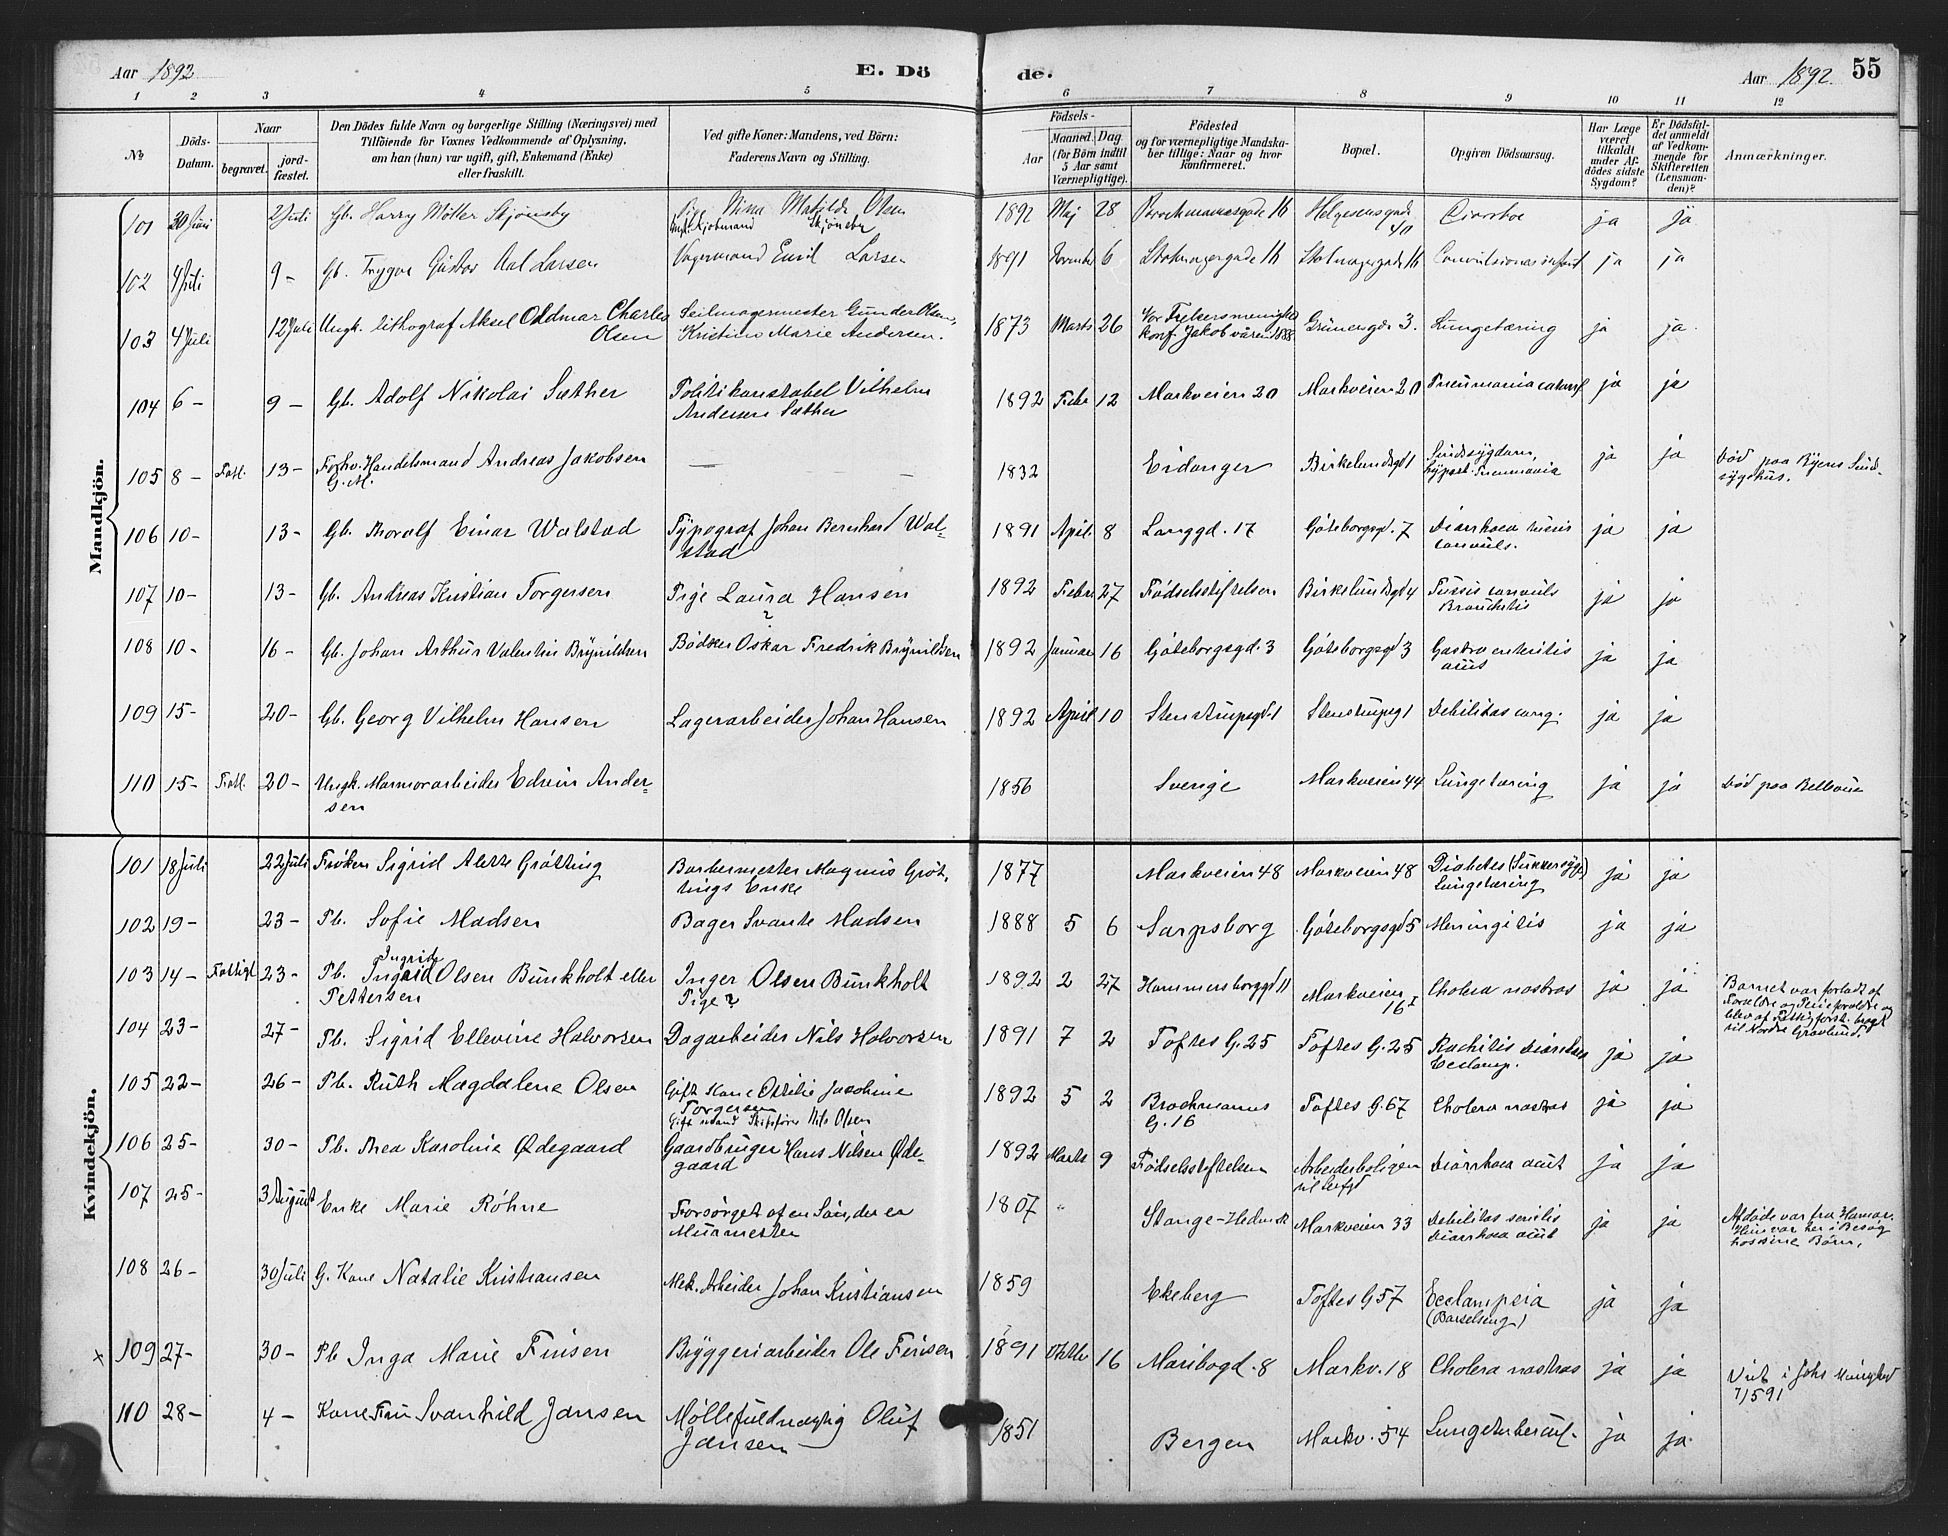 Aar 1892
E. Döde.
Aar 1892. 55
1 2 3 4 5 6 7 8 9 10 11 12
No
Döds-Datum.
Naar
begravet.
jord-fæstet.
Den Dödes fulde Navn og borgerlige Stilling (Næringsvei) med
Tilföiende for Voxnes Vedkommende af Oplysning,
om han (hun) var ugift, gift, Enkemand (Enke)
eller fraskilt.
Ved gifte Koner: Mandens, ved Börn:
Faderens Navn og Stilling.
Födsels-
Aar
Maaned. Dag
(for Börn indtil
5 Aar samt
Værnepligtige).
Födested
og for værnepligtige Mandska-
ber tillige: Naar og hvor
konfirmeret.
Bopæl.
Opgiven Dödsaarsag.
Har Læge
været
tilkaldt
under Af-
dödes sidste
Sygdom?
Er Dödsfal-
det anmeldt
af Vedkom-
mende for
Skifteretten
(Lensman-
den)?
Anmærkninger.
Mandkjön.
101 30 Juni 2 Juli Gb. Harry Møller Skjønsby Pige Nina Matilde Olsen 1892 Maj 28 16 Helgesensgade ja ja
Skjønsby 40
102 4 Juli 9 - Gb. Trygve Gustav Aal Larsen Vognmand Emil Larsen 1891 November 6 16 16 ja ja
103 4 Juli 12 Juli Ungk. Lithograf Aksel Oldmar Charles Seilmagermester Gunder Olsen, 1873 Marts 26 Vor Frelsersmenighed Grünersgd 3. Lungetæring ja ja
Olsen Kristine Marie Andersen. konf. Jakob våren 1888
104 6 - 9 - Gb. Adolf Nikolai Sæther Politikonstabel Vilhelm 1892 Febr 12 Markveien 20 Markveien 20 Pneumonia catarrh ja ja
Andersen Sæther
105 8 - Fatt. 13 - Forhv. Handelsmand Andreas Jakobsen 1832 Eidanger Birkelundsgd 1 Sindssygdom, ja ja Död paa Byens Sind-
G.M. hypost. Pneumonia sygehus.
106 10 - 13 - Gb. Thoralf Einar Walstad Typograf Johan Bernhard Wal- 1891 April 8 Langgd. 17 Göteborgsgd. 7 Diarrhoea tussis ja ja
stad convuls.
107 10 - 13 - Gb. Andreas Kristian Torgersen Pige Laura Hansen 1892 Febr 27 Födselsstiftelsen Birkelundsgd 4 Tussis convuls ja ja
? Bronchitis
108 10 - 16 - Gb. Johan Arthur Valentin Brynildsen Bødker Oskar Fredrik Brynildsen 1892 Januar 16 Göteborgsgd. 3 Göteborgsgd 3 Gastro enteritis ja ja
acut
109 15 - 20 - Gb. Georg Vilhelm Hansen Lagerarbeider Johan Hansen 1892 April 10 Stenstrupsgd. 1 Stenstrupsg 1 Debilitas cong. ja ja
110 15 - Fatt. 20 - Ungk. Marmorarbeider Edvin Ander- 1856 Sverige Markveien 44 Lungetæring ja ja Död paa Bellevue
sen
Kvindekjön.
101 18 Juli 22 Juli Frøken Sigrid Alette Grøtting Barbermester Magnus Grøt- 1877 Markveien 48 Markveien 48 Diabetes (Sukkersyge) ja ja
tings Enke Lungetæring
102 19 - 23 - Pb. Sofie Madsen Bager Svante Madsen 1888 5 6 Sarpsborg Göteborgsgd 5 Meningitis ja ja
103 14 - Fattigt 23 - Pb. Ingrid Olsen Bunkholt eller Inger Olsen Bunkholt 1892 2 27 Hammersborggd 11 Markveien Cholera nostras ja ja Barnet var forladt af
Ingrid Pettersen Pige ? 16 I Forældre og Pleieforældre og
blev af Fattigforst. bragt
til Nordre Gravlund.
104 23 - 27 - Pb. Sigrid Ellevine Halvorsen Dagarbeider Nils Halvorsen 1891 7 2 Toftes G. 25 Toftes G. 25 Rachitis Diarrhoea ja ja
Eclamp.
105 22 - 26 - Pb. Ruth Magdalene Olsen Gift Kone Ottilie Josephine 1892 5 2 Brochmanns Toftes G. 67 Cholera nostras ja ja
Torgersen G. 16
Gift Nils Olsen
106 25 - 30 - Pb. Thea Karoline Ødegaard Gaardbruger Hans Nilsen Øde- 1892 Marts 9 Födselsstiftelsen Arbeiderboligen Diarrhoea acut ja ja
gaard
107 25 - 3 August Enke Marie Röhne Forsørget af en Søn, der er 1807 " Stange - Hedmark Markveien 33 Debilitas senilis ja ja Afdøde var fra Hamar.
Murmester Diarrhoea acut Hun var her i Besøg
hos sine Børn.
108 26 - 30 Juli G. Kone Natalie Kristiansen Mek. Arbeider Johan Kristiansen 1859 Ekeberg Toftes G 57 Ecclampsia ja ja
(Barselseng)
x 109 27 - 30 - Pb Inga Marie Finsen Bryggeriarbeider Ole Finsen 1891 Oktbr 16 Maribogd. 8 Markv. 18 Cholera nostras ja ja i Johs Menighed
7/591
110 28 - 4 - Kone Fru Svanhild Jansen Møllefuldmægtig Oluf 1851 Bergen Markv. 54 Lungetubercul- ja ja.
Jansen